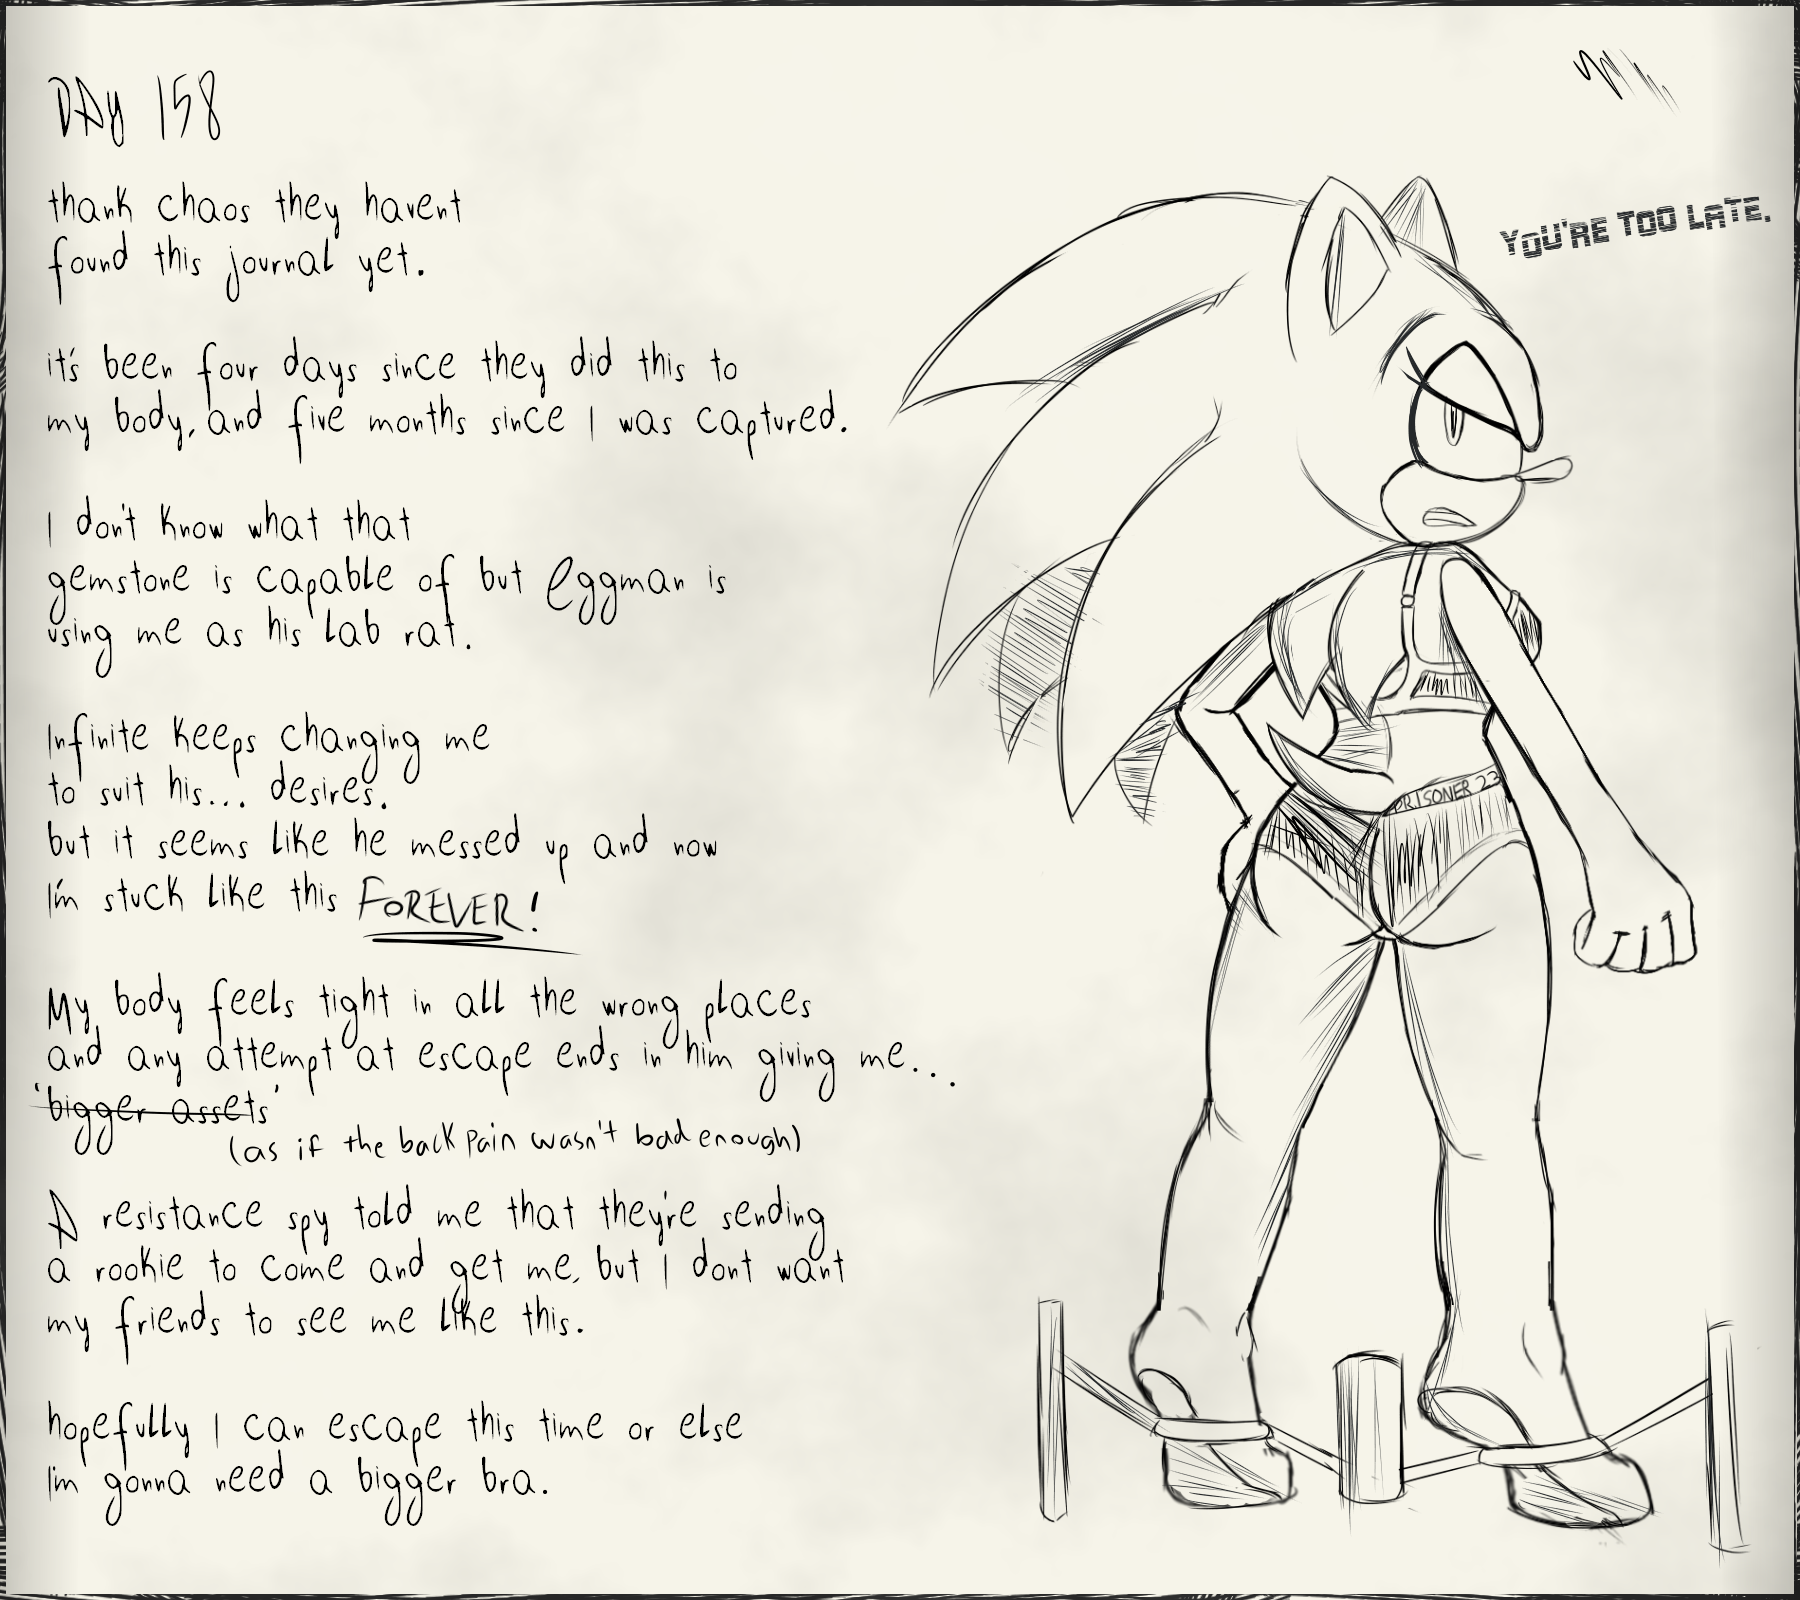 DAY 158
thank chaos they havent
found this journal yet.
it's been four days since they did this to
my body, and five months since I was captured.
I don't know what that
gemstone is capable of but Eggman is
using me as his lab rat.
Infinite keeps changing me
to suit his... desires.
but it seems like he messed up and now
I'm stuck like this FOREVER!
My body feels tight in all the wrong places
and any attempt at escape ends in him giving me...
'bigger assets'
(as if the back pain wasn't bad enough)
A resistance spy told me that they're sending
a rookie to come and get me, but I dont want
my friends to see me like this.
hopefully I can escape this time or else
I'm gonna need a bigger bra.
YOU'RE TOO LATE.
PRISONER 23